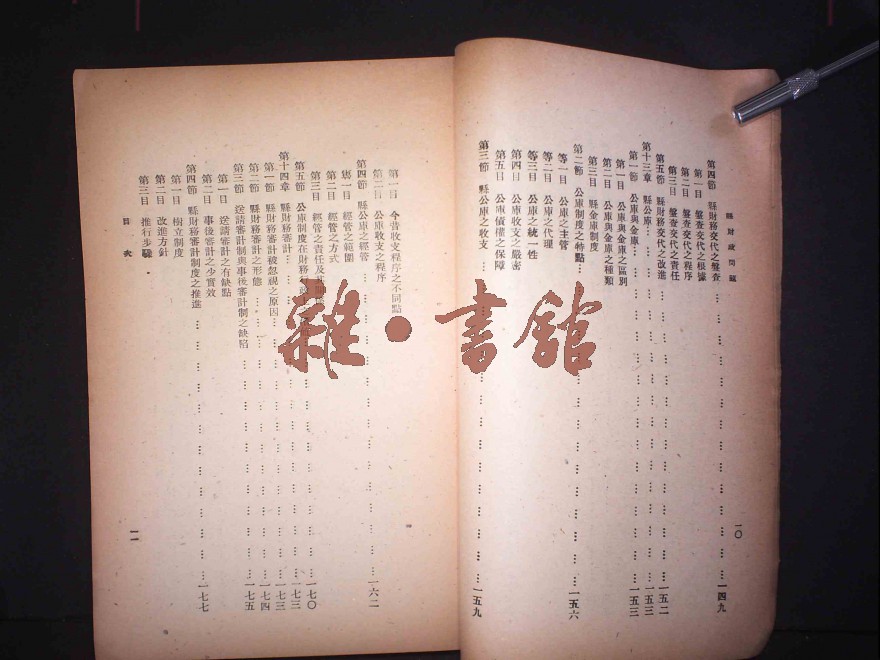 縣財政問題
一〇
第四節 縣財務交代之盤查…一四九
第一目 盤查交代之根據
第二目 盤查交代之程序
第三目 盤查交代之責任
第五節 縣財務交代之改進…一五二
第十三章 縣公庫…一五三
第一節 公庫與金庫…一五三
第一目 公庫與金庫之區別
第二目 公庫與金庫之種類
第三目 縣金庫制度
第二節 公庫制度之特點…一五六
等一目 公庫之主管
等二目 公庫之代理
等三目 公庫之統一性
第四目 公庫收支之嚴密
第五目 公庫債權之保障
第三節 縣公庫之收支…一五九
第一目 今昔收支程序之不同點
第二目 公庫收支之程序
第四節 縣公庫之經管…一六二
第一目 經管之範圍
第二目 經管之方式
第三目 經管之責任及
第五節 公庫制度在財務行政…一七〇
第十四章 縣財務審計…一七三
第一節 縣財務審計被忽視之原因…一七三
第二節 縣財務審計之形態…一七四
第三節 送請審計制與事後審計制之缺陷…一七五
第一目 送請審計之有缺點
第二目 事後審計之少實效
第四節 縣財務審計制度之推進…一七七
第一目 樹立制度
第二目 改進方針
第三目 推行步驟
目次
一一
雜·書館